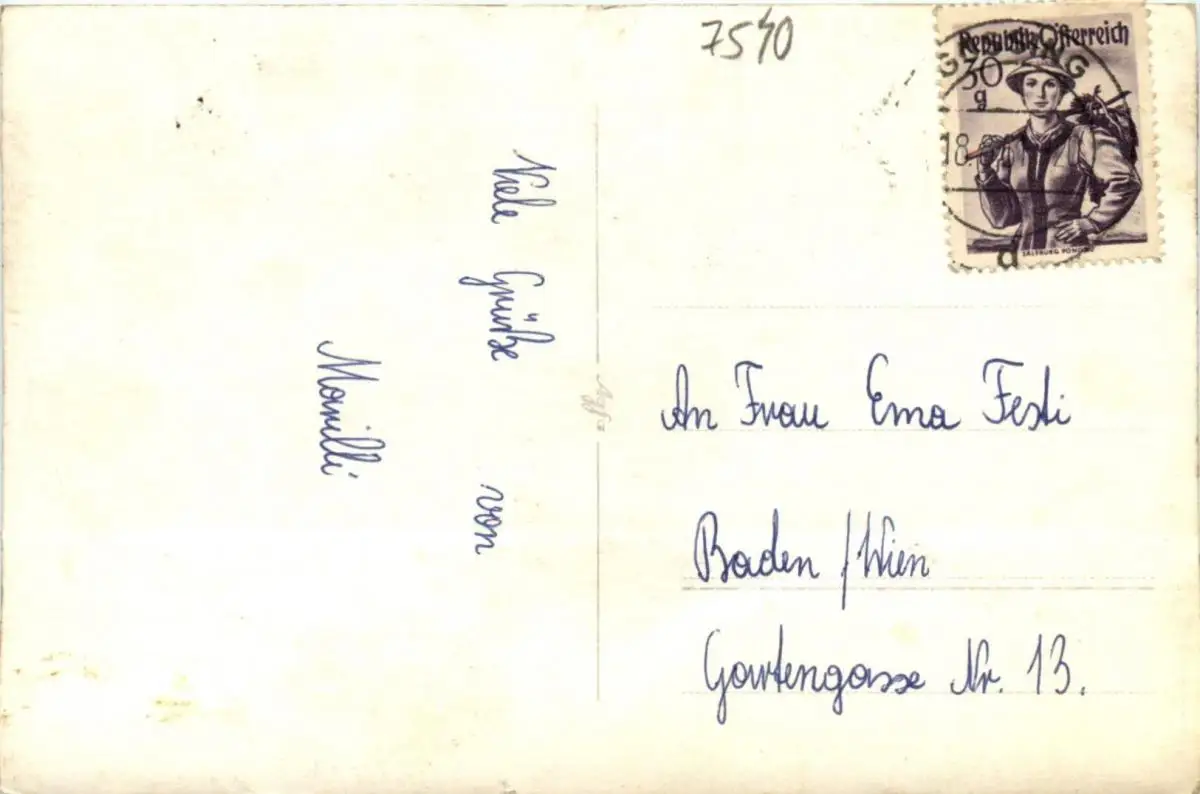 7540
Republik Österreich
30
g
18.
d
SALZBURG PONGAU
Viele Grüße von
Marilli
An Frau Erna Festi
Baden / Wien
Gartengasse Nr. 13.